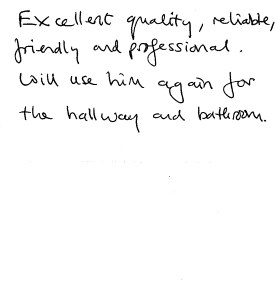 Excellent quality, reliable,
friendly and professional.
Will use him again for
the hallway and bathroom.